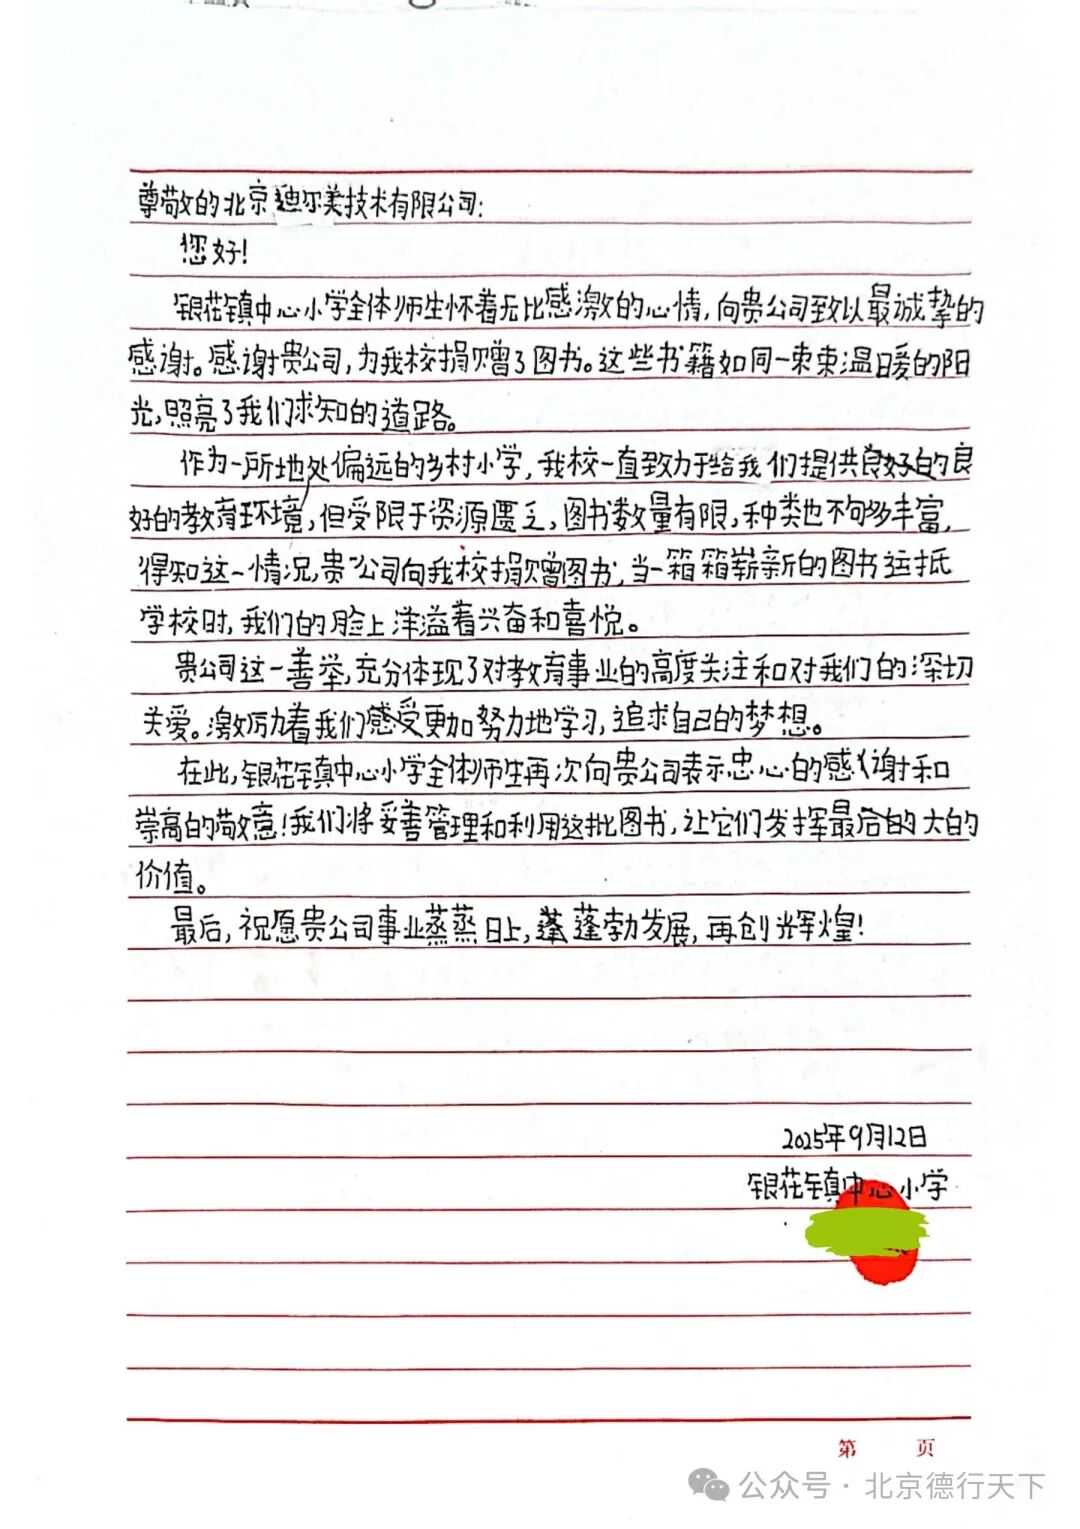 尊敬的北京迪尔美技术有限公司:
您好!
银花镇中心小学全体师生怀着无比感激的心情,向贵公司致以最诚挚的
感谢。感谢贵公司,为我校捐赠了图书。这些书籍如同一束束温暖的阳
光,照亮了我们求知的道路。
作为一所地处偏远的乡村小学,我校一直致力于给我们提供良好的良
好的教育环境,但受限于资源匮乏,图书数量有限,种类也不够多丰富,
得知这一情况,贵公司向我校捐赠图书,当一箱箱崭新的图书运抵
学校时,我们的脸上洋溢着兴奋和喜悦。
贵公司这一善举,充分体现了对教育事业的高度关注和对我们的深切
关爱。激厉着我们感受更加努力地学习,追求自己的梦想。
在此,银花镇中心小学全体师生再次向贵公司表示忠心的感谢和
崇高的敬意!我们将妥善管理和利用这批图书,让它们发挥最后的大的
价值。
最后,祝愿贵公司事业蒸蒸日上,蓬蓬勃发展,再创辉煌!
2025年9月12日
银花镇中心小学
第 页
公众号·北京德行天下